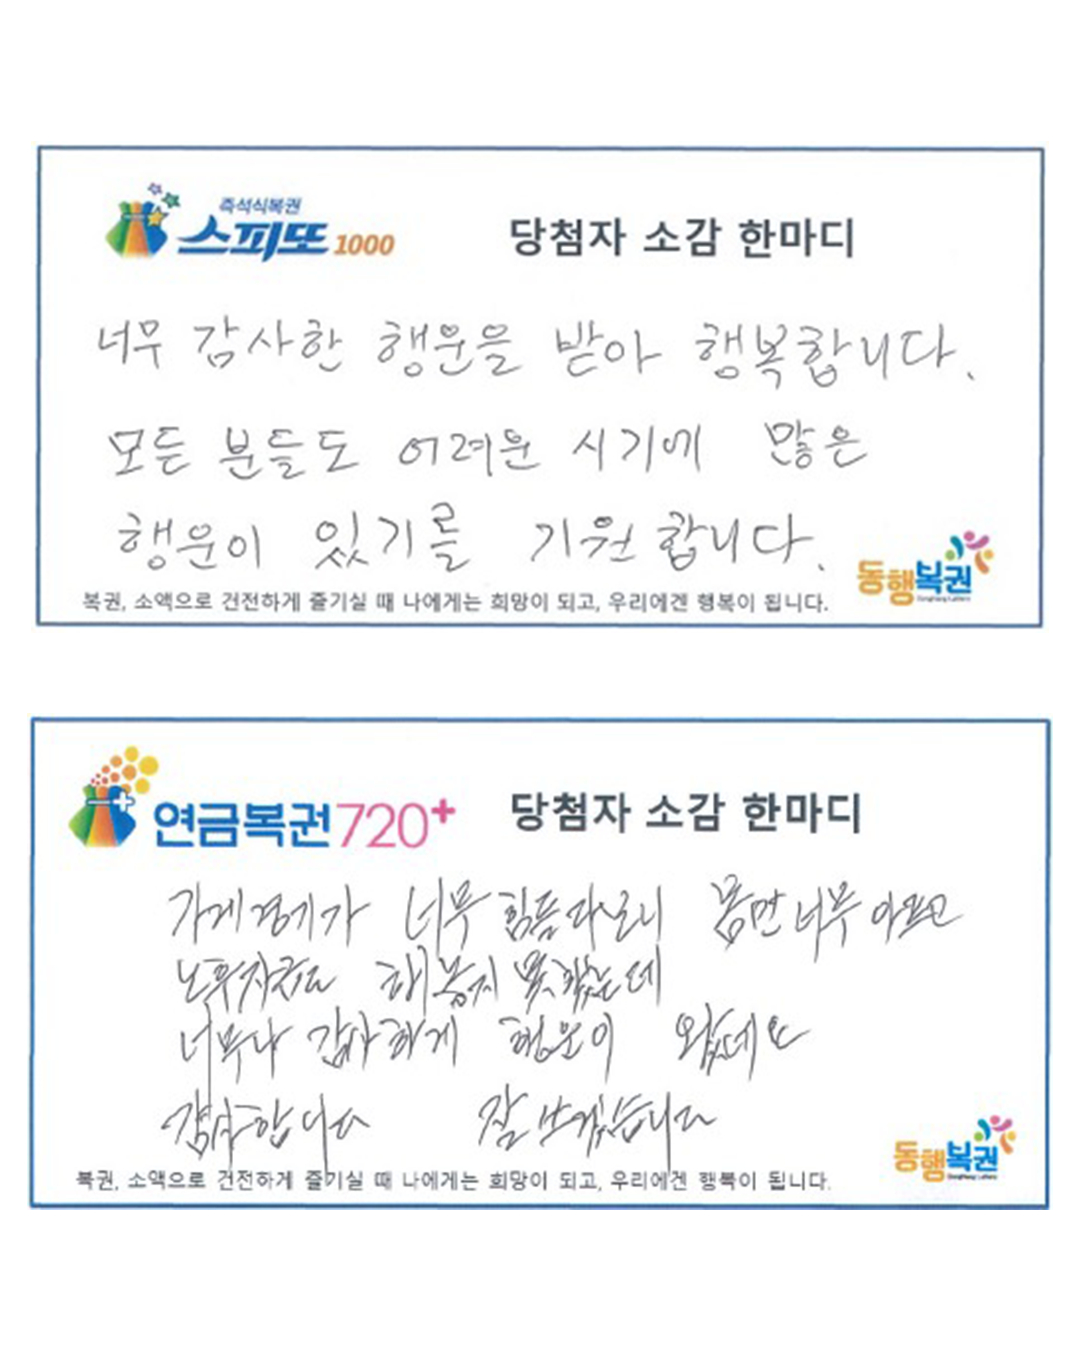 즉석식복권
스피또1000
당첨자 소감 한마디
너무 감사한 행운을 받아 행복합니다.
모든 분들도 어려운 시기에 많은
행운이 있기를 기원합니다.
복권, 소액으로 건전하게 즐기실 때 나에게는 희망이 되고, 우리에겐 행복이 됩니다.
동행복권
연금복권720+
당첨자 소감 한마디
가게경기가 너무 힘들다보니 몸만 너무 아프고
노후자금도 행봉지 못했는데
너무나 감사하게 행운이 왔네요
감사합니다 잘 쓰겠습니다
복권, 소액으로 건전하게 즐기실 때 나에게는 희망이 되고, 우리에겐 행복이 됩니다.
동행복권